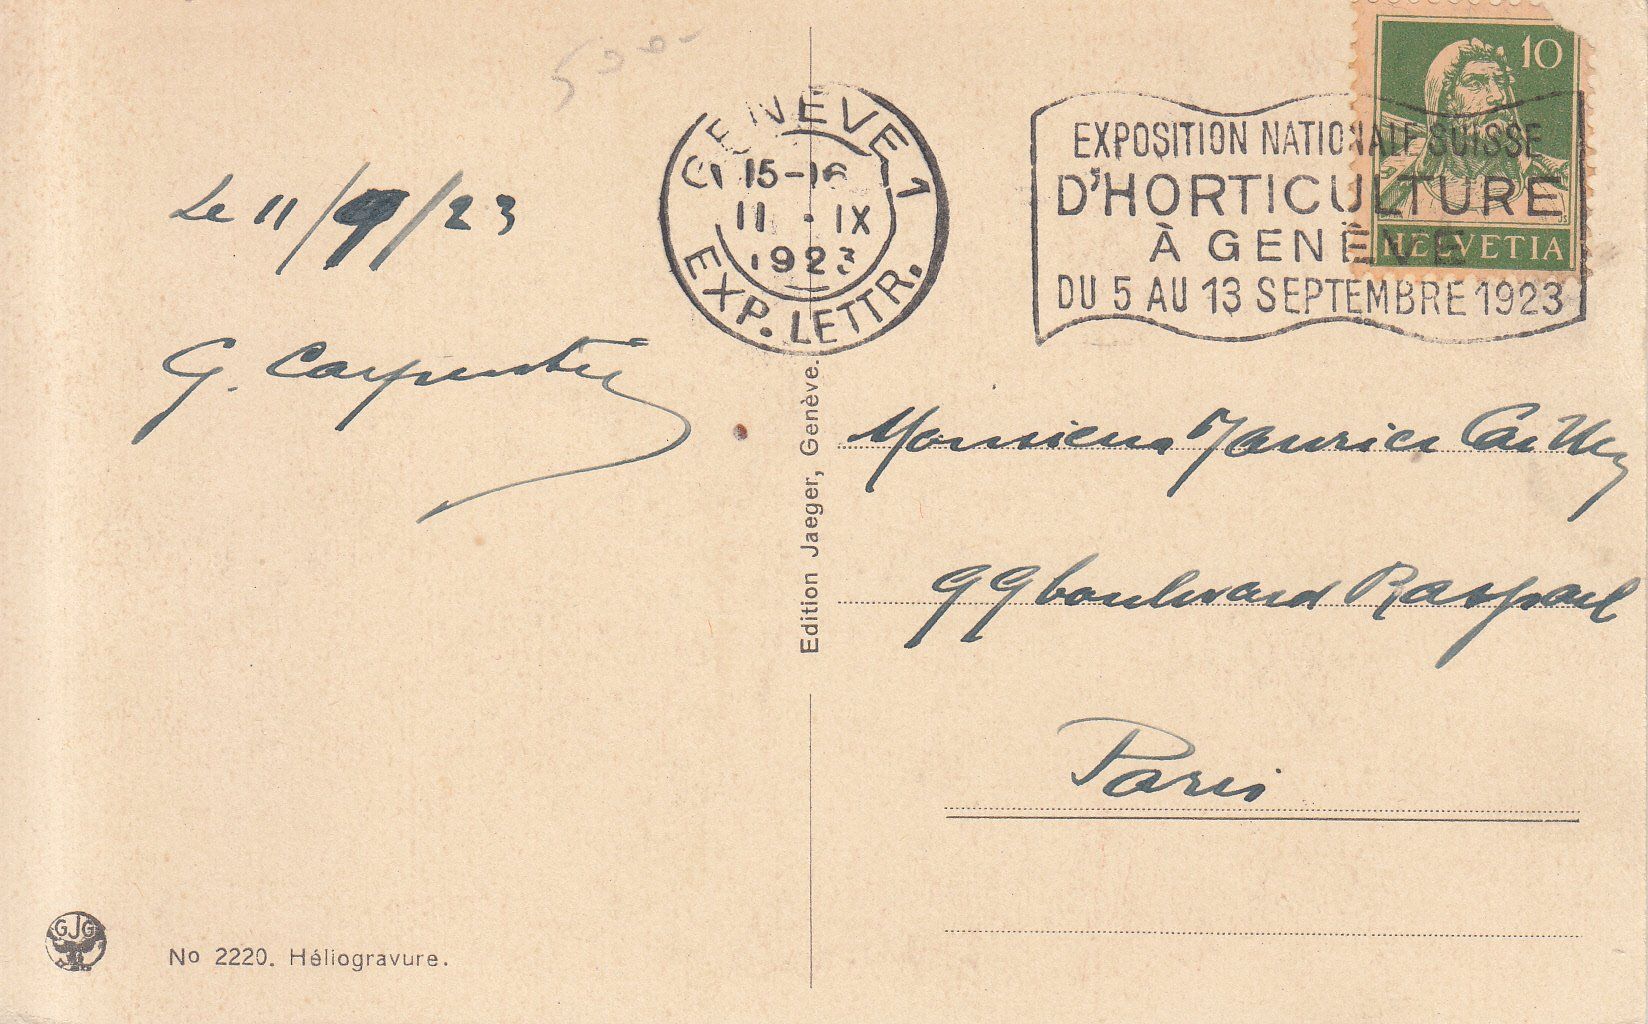 500-
GENÈVE 1
15-16
11 · IX
1923
EXP. LETTR.
10
HELVETIA
EXPOSITION NATIONALE SUISSE
D'HORTICULTURE
À GENÈVE
DU 5 AU 13 SEPTEMBRE 1923
Le 11/9/23
G. Carpentier
Edition Jaeger, Genève.
Monsieur Maurice Cailly
99 boulevard Raspail
Paris
GJG
No 2220. Héliogravure.